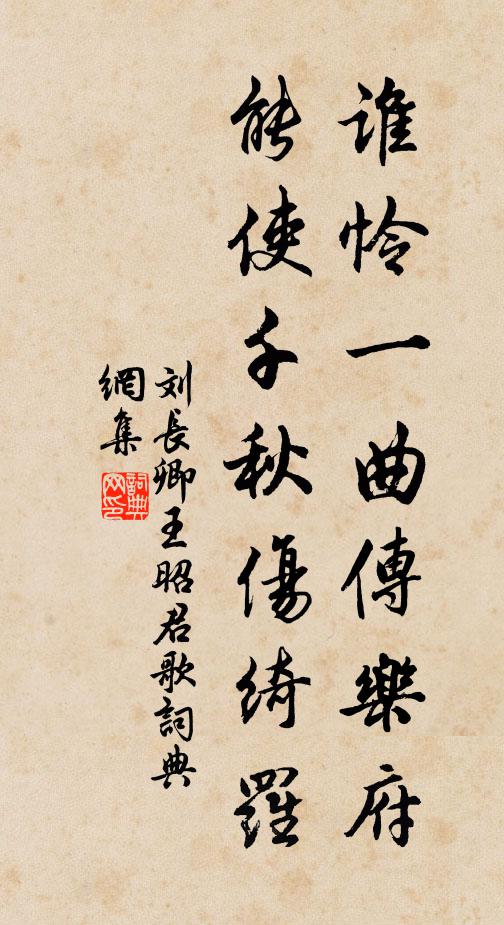 谁怜一曲傳樂府
能使千秋傷綺羅
刘長卿王昭君歌詞典
網集
詞典
网印